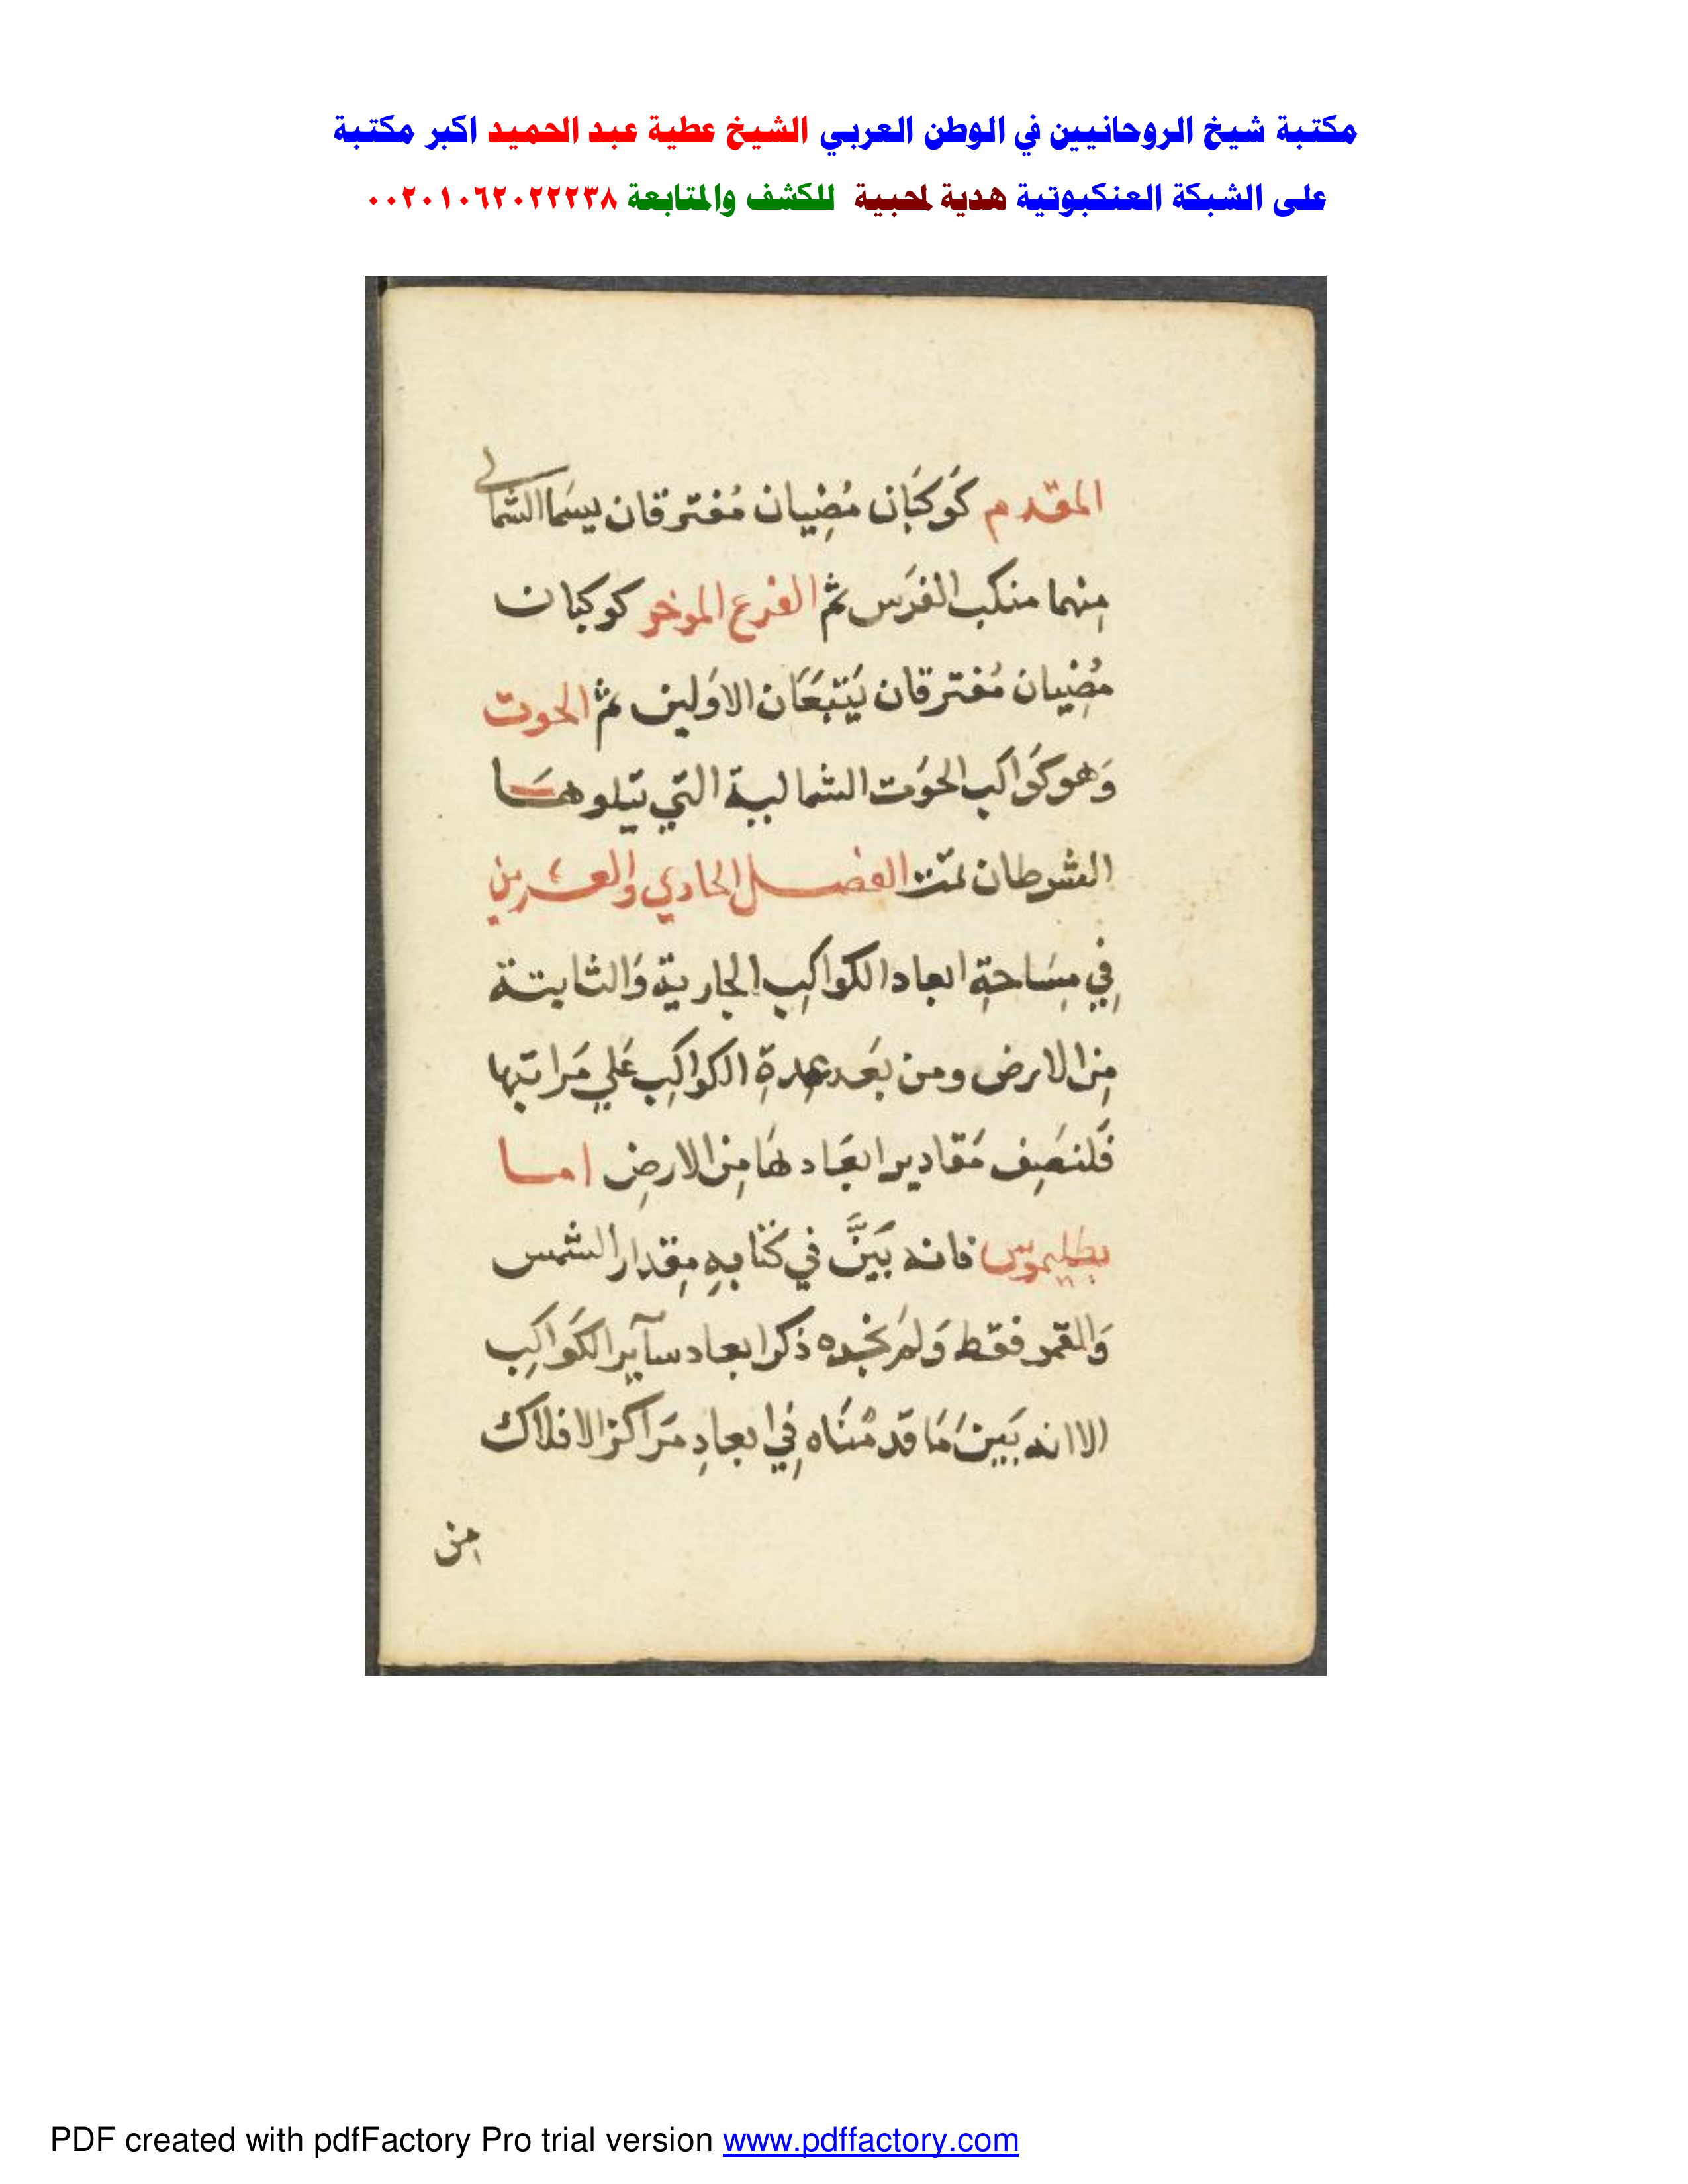 مكتبة شيخ الروحانيين في الوطن العربي الشيخ عطية عبد الحميد اكبر مكتبة
على الشبكة العنكبوتية هدية لمحبية للكشف والمتابعة ٠٠٢٠١٠٦٢٠٢٢٢٣٨
المقدم كَوكبَان مُضِيان مُفترقان يسَما الشمالي
مِنهما منكب الفرَس ثم الفرع الموخر كوكبان
مُضِيان مُفترقان يَتبعَان الاوَلين ثم الحوت
وَهو كَواكب الحوُت الشمالية التي تتلوهَا
الشرطان تمت الفصل الحادي والعشرين
فِي مِسَاحةِ ابعاد الكواكِب الجارية وَالثابتة
مِن الارض ومن بَعد عِدةِ الكواكِب عَلي مَراتبها
فَلنصِف مَقادير ابعَادهَا مِن الارضِ اما
بطليموس فانه بَيَّنَ في كتابهِ مِقدار الشمس
وَالقمر فقط وَلمَ نجده ذكر ابعاد سآير الكَواكِب
الا انه بَينَ مَا قدمْنَاه فِي ابعادِ مَراكز الافلاك
مِن
PDF created with pdfFactory Pro trial version www.pdffactory.com